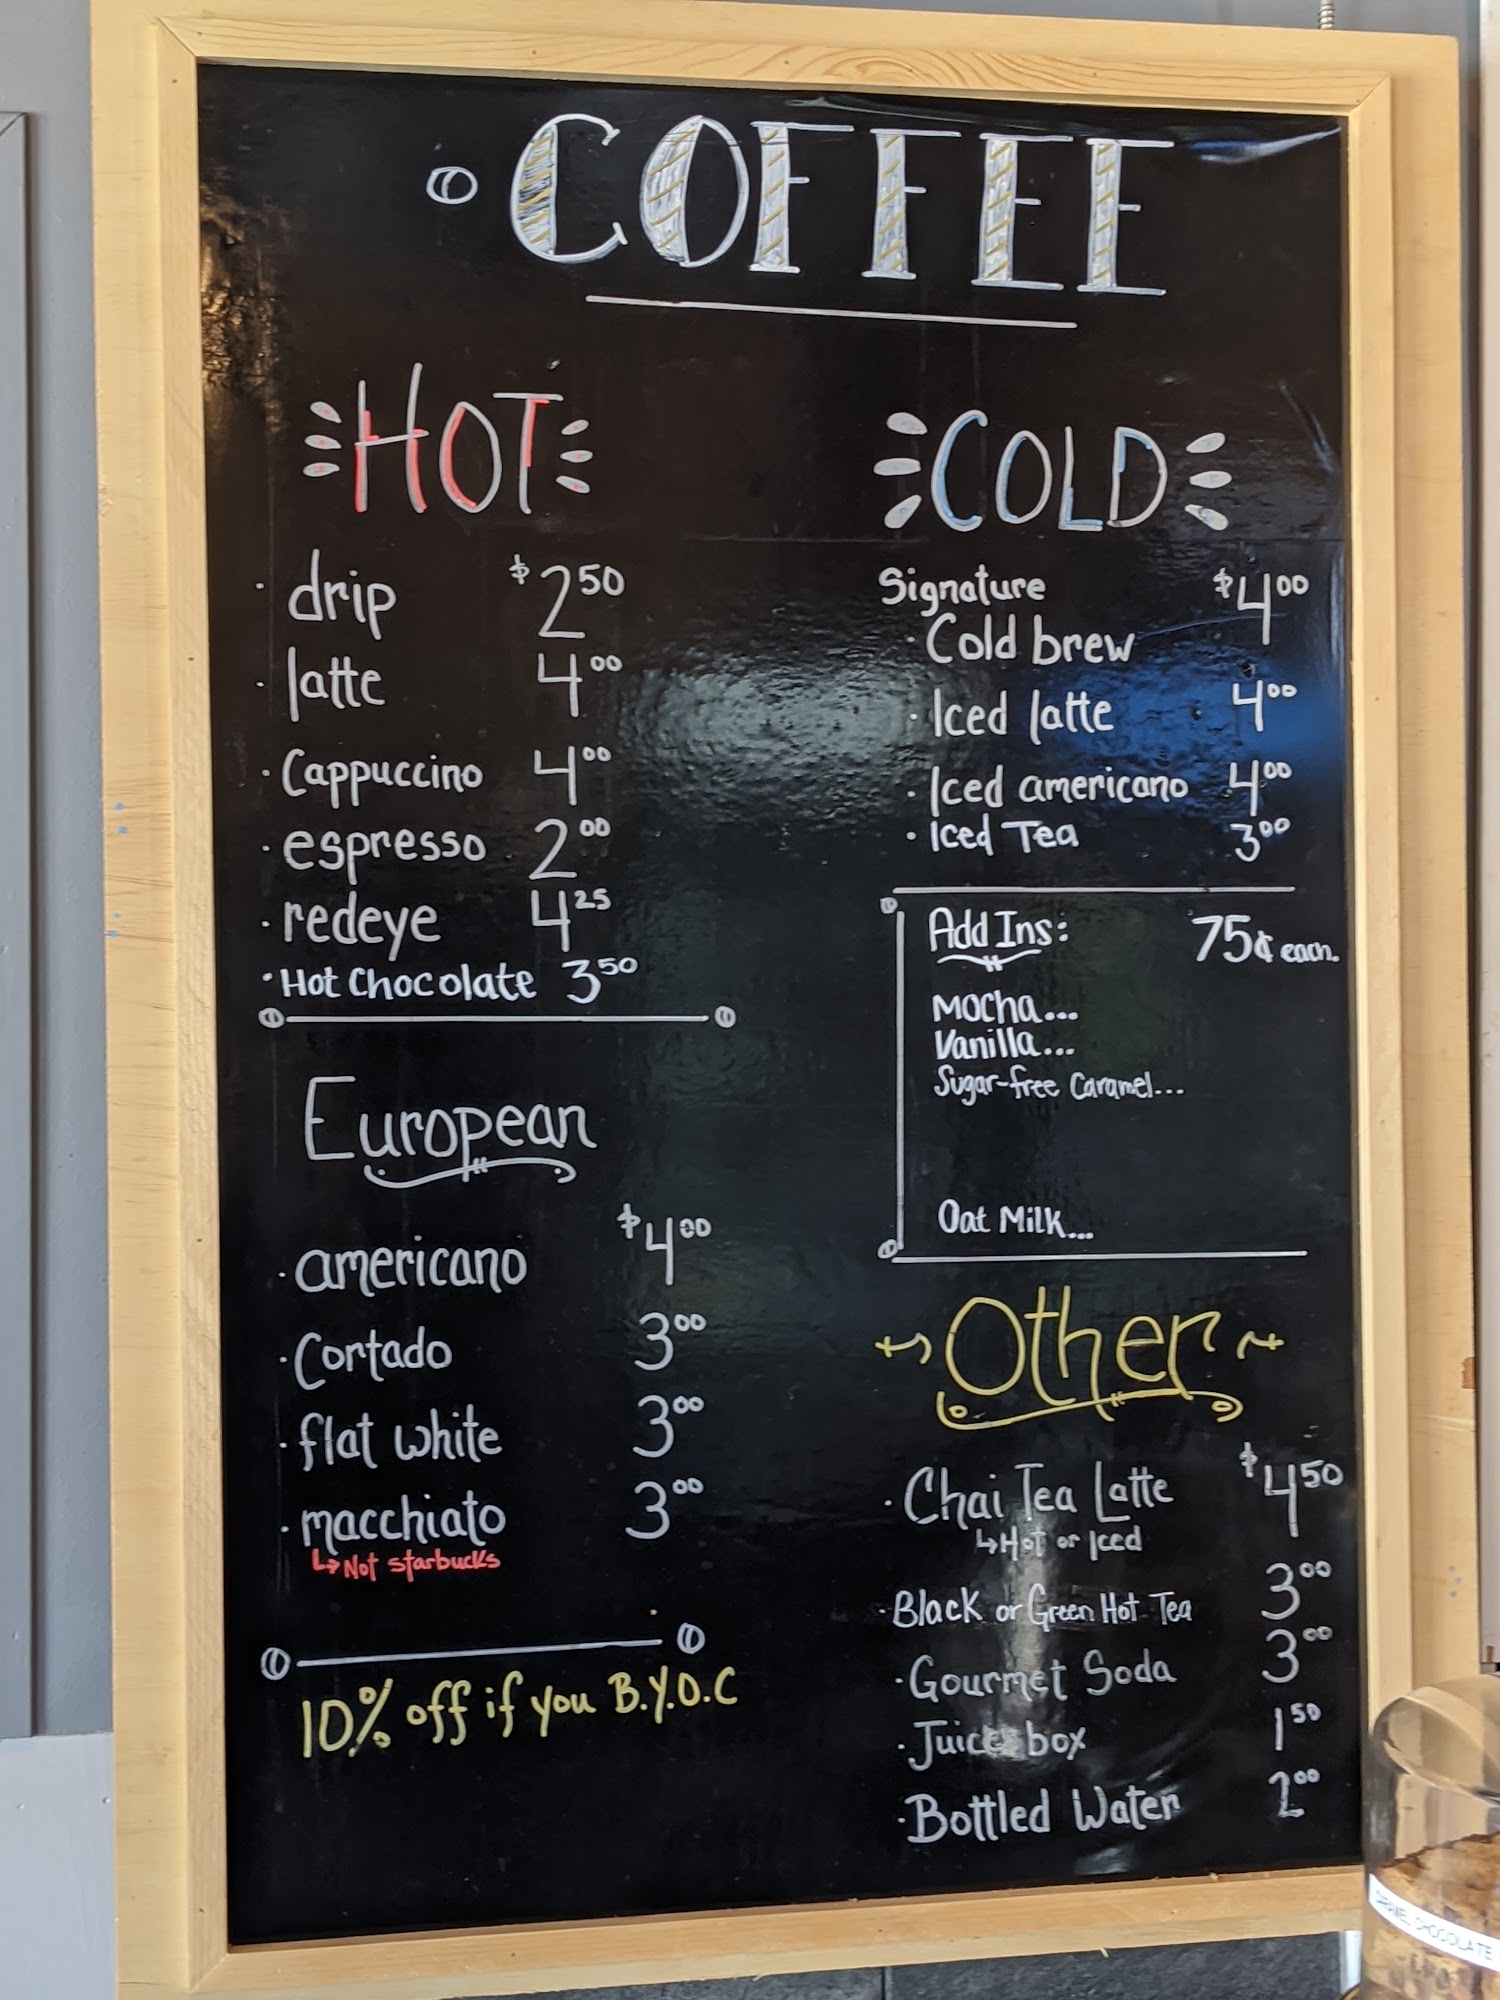 COFFEE
HOT
drip $2.50
latte 4.00
Cappuccino 4.00
espresso 2.00
redeye 4.25
Hot Chocolate 3.50
European
americano $4.00
Cortado 3.00
flat white 3.00
macchiato 3.00
↳ Not starbucks
10% off if you B.Y.O.C
COLD
Signature
Cold brew $4.00
Iced latte 4.00
Iced americano 4.00
Iced Tea 3.00
Add Ins: 75¢ each.
Mocha...
Vanilla...
Sugar-free Caramel...
Oat Milk...
Other
Chai Tea Latte $4.50
↳ Hot or Iced
Black or Green Hot Tea 3.00
Gourmet Soda 3.00
Juice box 1.50
Bottled Water 2.00
CHOCOLATE